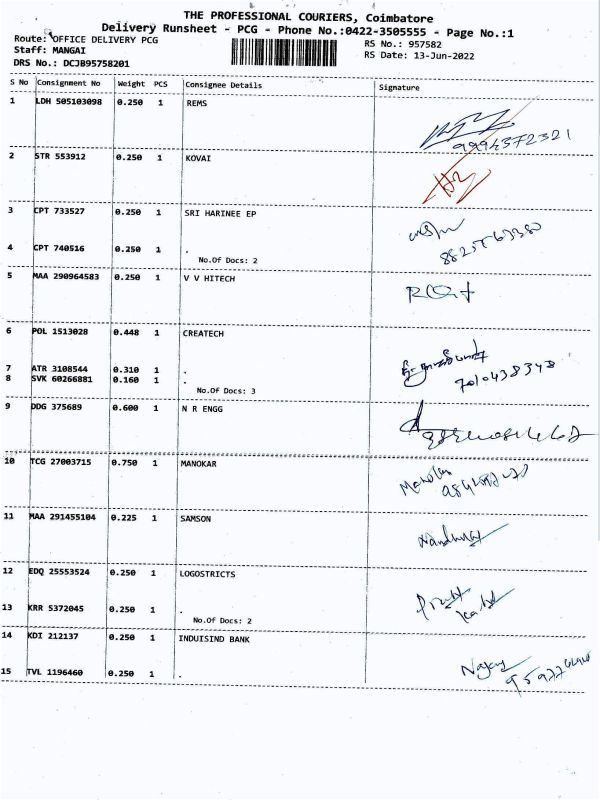 THE PROFESSIONAL COURIERS, Coimbatore
Delivery Runsheet - PCG - Phone No.:0422-3505555 - Page No.:1
Route: OFFICE DELIVERY PCG RS No.: 957582
Staff: MANGAI RS Date: 13-Jun-2022
DRS No.: DCJB95758201
S No Consignment No Weight PCS Consignee Details Signature
1 LDH 505103098 0.250 1 REMS
9994372321
2 STR 553912 0.250 1 KOVAI
3 CPT 733527 0.250 1 SRI HARINEE EP
4 CPT 740516 0.250 1 .
No.Of Docs: 2
5 MAA 290964583 0.250 1 V V HITECH
6 POL 1513028 0.448 1 CREATECH
7 ATR 3108544 0.310 1 .
7010438348
8 SVK 60266881 0.160 1 .
No.Of Docs: 3
9 DDG 375689 0.600 1 N R ENGG
10 TCG 27003715 0.750 1 MANOKAR
11 MAA 291455104 0.225 1 SAMSON
12 EDQ 25553524 0.250 1 LOGOSTRICTS
13 KRR 5372045 0.250 1 .
No.Of Docs: 2
14 KDI 212137 0.250 1 INDUISIND BANK
15 TVL 1196460 0.250 1 .